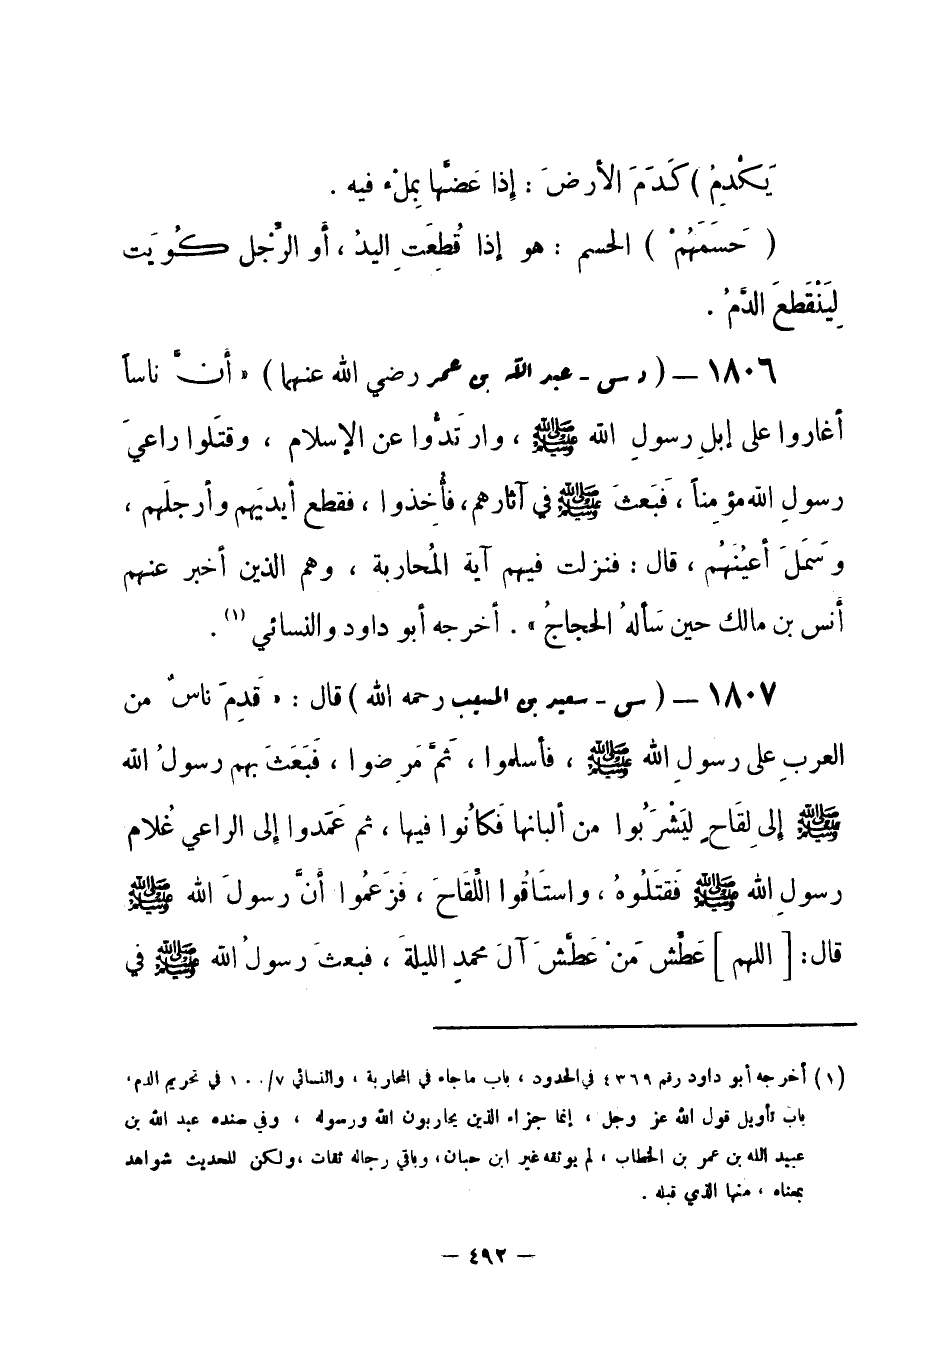 يَكْدِمُ ) كَدَمَ الأرضَ : إذا عَضَّها بِملْء فيه .
( حَسَمَهُمْ ) الحسم : هو إذا قُطِعَتِ اليدُ ، أو الرِّجل كُويَت
لِيَنْقَطِعَ الدَّمُ .
١٨٠٦ – ( د س - عبد الله بن عمر رضي الله عنهما ) « أنَّ ناساً
أغاروا على إبلِ رسولِ الله ﷺ ، وارتدُّوا عن الإسلام ، وقتَلوا راعيَ
رسولِ الله مؤمِناً ، فَبَعثَ ﷺ في آثارهم ، فأُخِذوا ، فقطع أيديَهم وأرجلَهم ،
وسَمَلَ أعيُنَهُم ، قال : فنزلت فيهم آية المُحاربة ، وهم الذين أخبر عنهم
أنس بن مالك حين سَأله الحجاجُ » . أخرجه أبو داود والنسائي (١) .
١٨٠٧ – ( س - سعيد بن المسيب رحمه الله ) قال : « قَدِمَ ناسٌ من
العربِ على رسولِ الله ﷺ ، فأسلموا ، ثمَّ مَرِضوا ، فَبَعَثَ بهم رسولُ الله
ﷺ إلى لِقَاحٍ ليَشْرَبُوا من ألبانها فَكانُوا فيها ، ثم عَمَدوا إلى الراعي غُلام
رسولِ الله ﷺ فَقتَلُوهُ ، واستَاقُوا اللِّقَاحَ ، فَزَعَمُوا أنَّ رسولَ الله ﷺ
قال : [ اللهم ] عَطِّش مَنْ عَطَّشَ آلَ محمدٍ الليلةَ ، فبعثَ رسولُ الله ﷺ في
(١) أخرجه أبو داود رقم ٤٣٦٩ في الحدود ، باب ماجاء في المحاربة ، والنسائي ١٠٠/٧ في تحريم الدم ،
باب تأويل قول الله عز وجل ، إنما جزاء الذين يحاربون الله ورسوله ، وفي سنده عبد الله بن
عبيد الله بن عمر بن الخطاب ، لم يوثقه غير ابن حبان ، وباقي رجاله ثقات ، ولكن للحديث شواهد
بمعناه ، منها الذي قبله .
– ٤٩٢ –